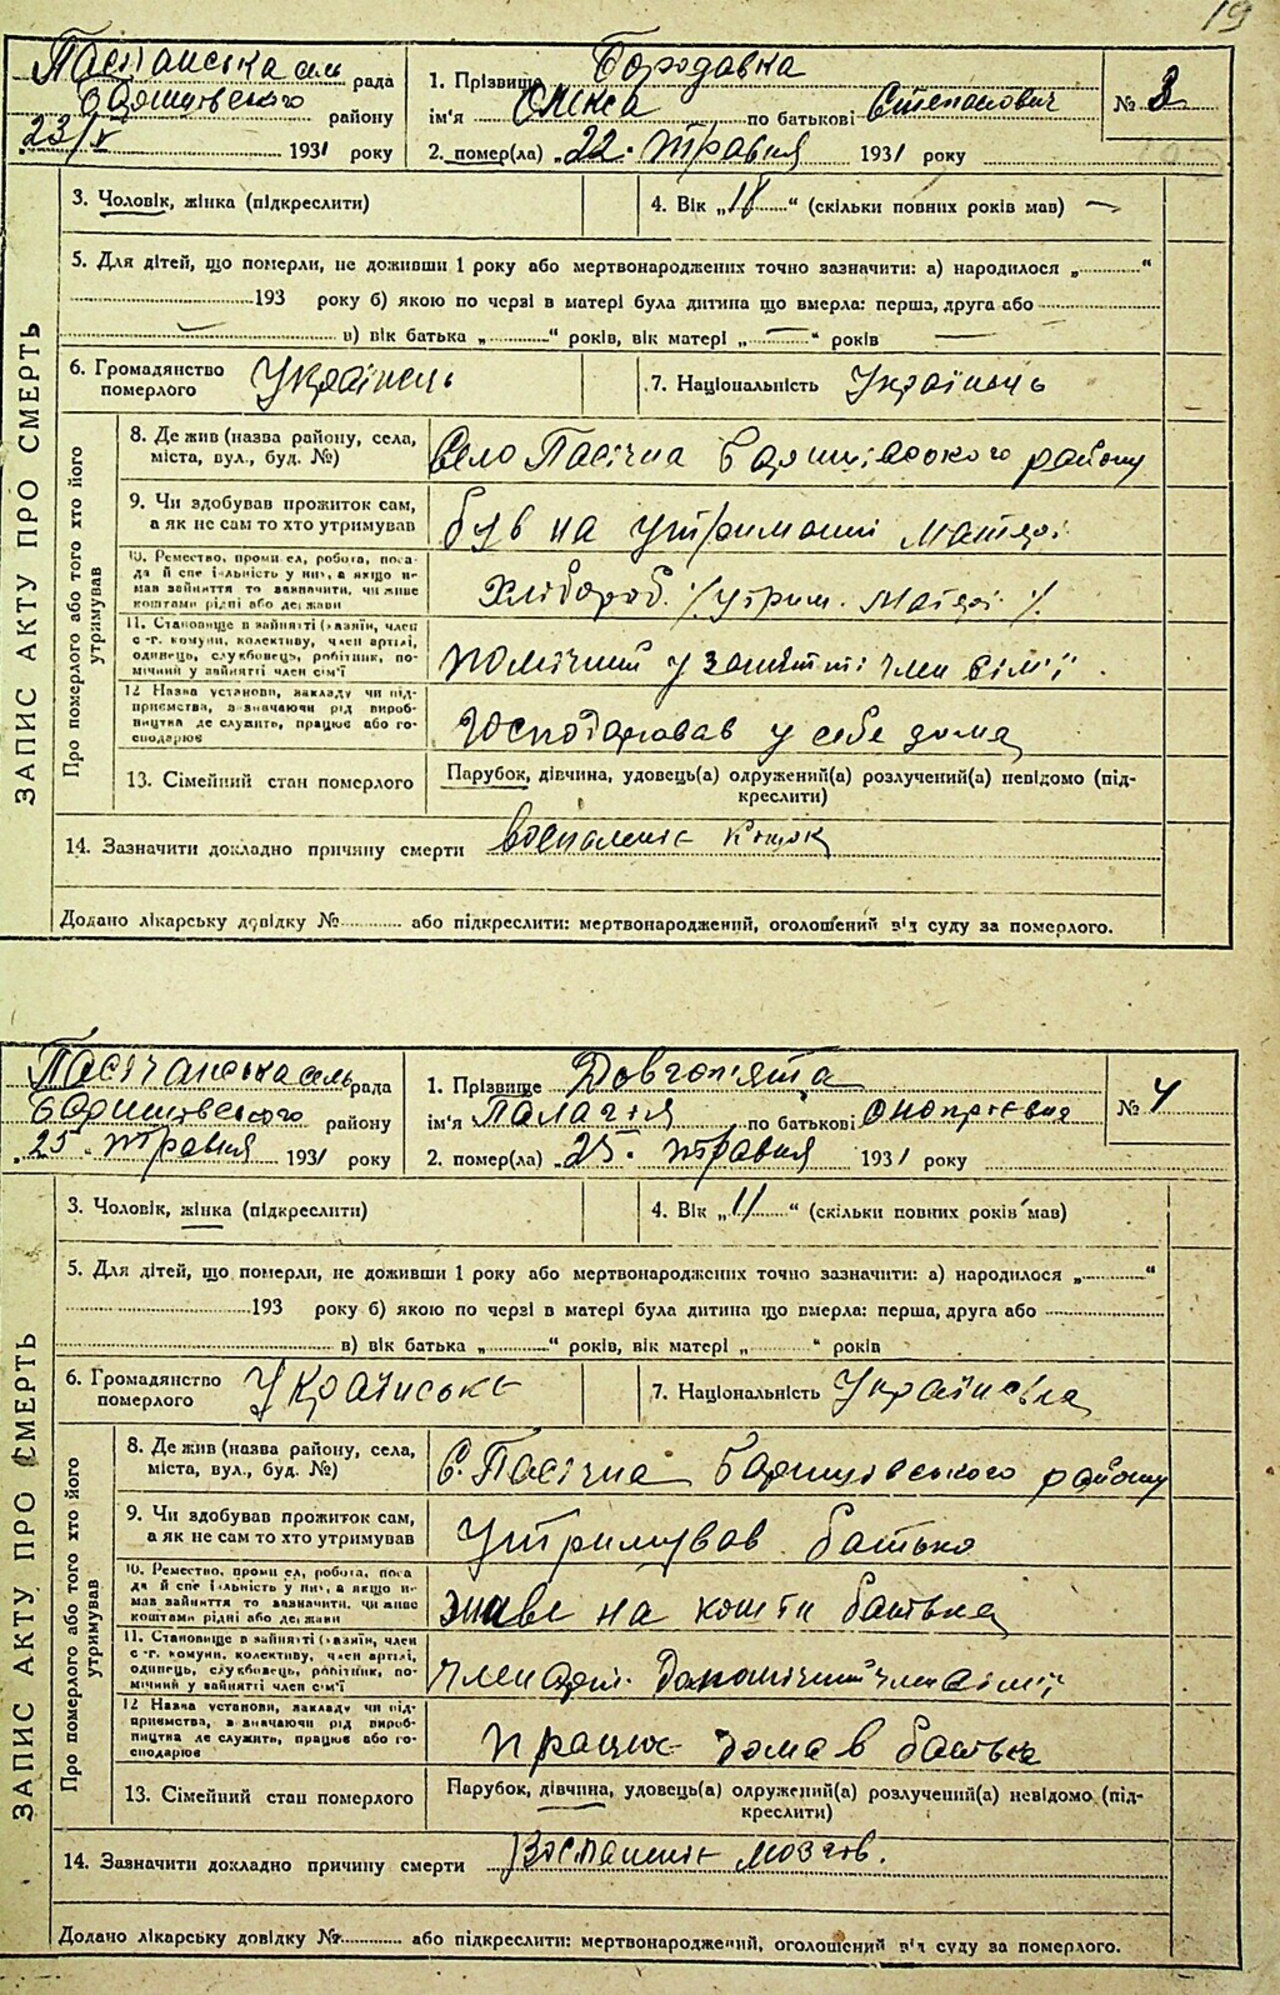 19
Пасічанська сель рада
Баришівського району
23/V 1931 року
1. Прізвище Бородавка
ім'я Олекса по батькові Степанович
2. помер(ла) „22" травня 1931 року
№ 3
ЗАПИС АКТУ ПРО СМЕРТЬ
3. Чоловік, жінка (підкреслити)
4. Вік „18" (скільки повних років мав)
5. Для дітей, що померли, не доживши 1 року або мертвонароджених точно зазначити: а) народилося „ “
193 року б) якою по черзі в матері була дитина що вмерла: перша, друга або
в) вік батька „ “ років, вік матері „ “ років
6. Громадянство померлого Українець
7. Національність Українець
Про померлого або того хто його утримував
8. Де жив (назва району, села,
міста, вул., буд. №)
Село Пасічна Баришівського району
9. Чи здобував прожиток сам,
а як не сам то хто утримував
був на утриманні матері
10. Ремество, проми ел, робота, поса-
да й спе іальність у ни›, а якщо н-
мав зайняття то зазначити, чи живе
коштами рідні або держави
Хлібороб. /утрим. матері/
11. Становище в зайнятті (хазяїн, член
с-г. комуни, колективу, член артілі,
одинець, службовець, робітник, по-
мічний у зайнятті член сім'ї
помічний у занятті член сім'ї
12 Назва установи, закладу чи під-
приємства, зазначаючи рід вироб-
ництва де служить, працює або го-
сподарює
Господарював у себе дома
13. Сімейний стан померлого
Парубок, дівчина, удовець(а) одружений(а) розлучений(а) невідомо (під-
креслити)
14. Зазначити докладно причину смерти воспаленіє кишок
Додано лікарську довідку № або підкреслити: мертвонароджений, оголошений від суду за померлого.
Пасічанська сель рада
Баришівського району
„25" травня 1931 року
1. Прізвище Довгоп'ята
ім'я Палагія по батькові Онопріевна
2. помер(ла) „25" травня 1931 року
№ 4
ЗАПИС АКТУ ПРО СМЕРТЬ
3. Чоловік, жінка (підкреслити)
4. Вік „11" (скільки повних років мав)
5. Для дітей, що померли, не доживши 1 року або мертвонароджених точно зазначити: а) народилося „ “
193 року б) якою по черзі в матері була дитина що вмерла: перша, друга або
в) вік батька „ “ років, вік матері „ “ років
6. Громадянство
померлого Українське
7. Національність Українська
Про померлого або того хто його утримував
8. Де жив (назва району, села,
міста, вул., буд. №)
С. Пасічна Баришівського району
9. Чи здобував прожиток сам,
а як не сам то хто утримував
Утримував батько
10. Ремество, проми ел, робота, поса
да й спе іальність у ни›, а якщо н-
мав зайняття то зазначити, чи живе
коштами рідні або держави
живе на кошти батька
11. Становище в зайнятті (хазяїн, член
с-г. комуни, колективу, член артілі,
одинець, службовець, робітник, по-
мічний у зайнятті член сім'ї
член сім'ї
12 Назва установи, закладу чи під-
приємства, зазначаючи рід вироб-
ництва де служить, працює або го-
сподарює
працює дома в батька
13. Сімейний стан померлого
Парубок, дівчина, удовець(а) одружений(а) розлучений(а) невідомо (під-
креслити)
14. Зазначити докладно причину смерти Воспаленіє мозгов.
Додано лікарську довідку № або підкреслити: мертвонароджений, оголошений від суду за померлого.